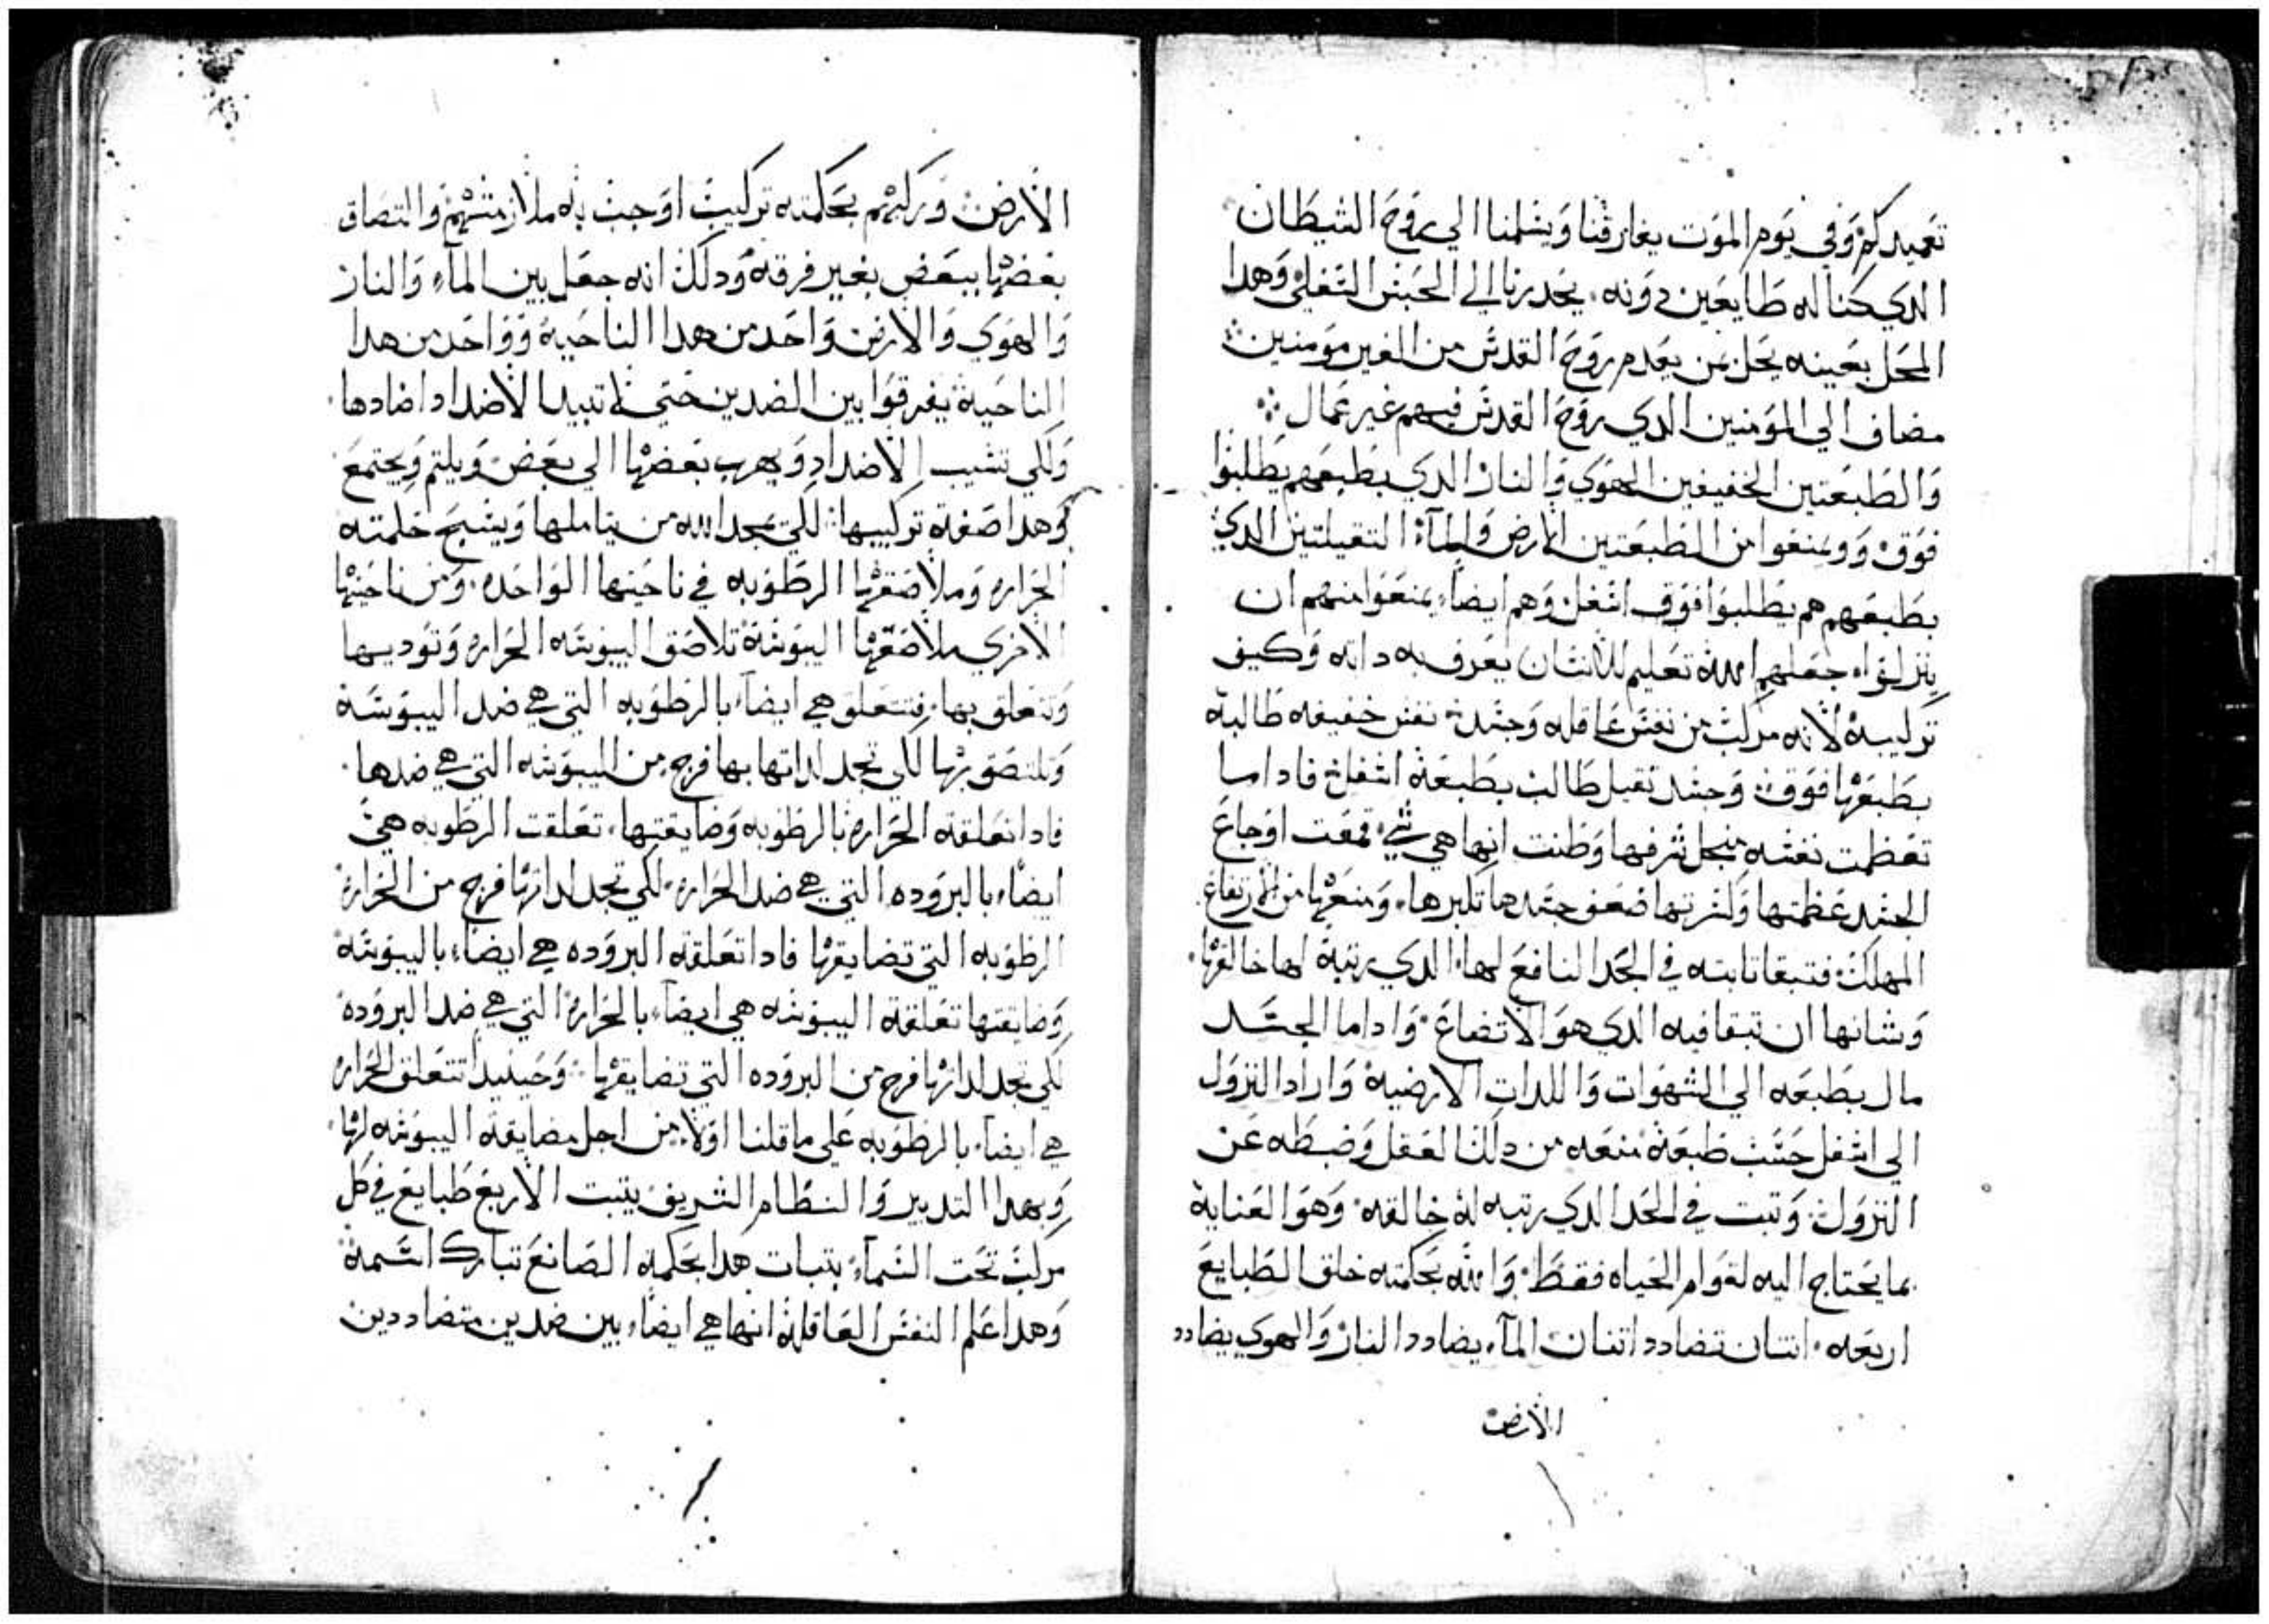 تعميدكم وفي يوم الموت يفارقنا ويسلمنا الي روح الشيطان
الدي كنا له طايعين دونه يحدرنا الي الحبس السفلي وهدا
المحل بعينه يحل بمن يعدم روح القدس من الغير مومنين
مضاف الي المومنين الدي روح القدس فيهم غير عمال
والطبعتين الخفيفين الهوي والنار الدي بطبعهم يطلبوا
فوق وويمنعوا من الطبعتين الارض والمآء التقيلتين الدي
بطبعهم هم يطلبوا فوق اسفل وهم ايضاً يمنعوا منهم ان
ينزلوا جعلهم الله تعليم للانسان يعرف به داته وكيف
تركيبه لانه مركب من نفس عاقله وجسد نفس خفيفه طالبة
بطبعها فوق وجسد تقيل طالب بطبعة اسفل فاداما
تعظمت نفسه منجل شرفها وظنت انها هي شي قمعت اوجاع
الجسد عظمتها وكسرتها ضعف جسدها تكبرها ومنعها من الارتفاع
المهلك فتبقا تابته في الحد النافع لها الدي رتبة لها خالقها
وشانها ان تبقا فيه الدي هو الاتضاع واداما الجسد
مال بطبعه الي الشهوات واللدات الارضية واراد النزول
الي اسفل حسب طبعة منعه من دلك العقل وضبطه عن
النزول وتبت في الحد الدي رتبه له خالقه وهو العناية
بما يحتاج اليه لقوام الحياه فقط والله بحكمته خلق الطبايع
اربعه اتنان تضادد اتنان المآء يضادد النار والهوي يضادد
الارض
الارض وركبهم بحكمته تركيب اوجب به ملازمتهم والتصاق
بعضها ببعض بغير فرقة ودلك انه جعل بين المآء والنار
والهوي والارض واحد من هدا الناحية وواحد من هدا
الناحية يفرقوا بين الضدين حتي لا تبيد الاضداد اضادها
ولكي تشيب الاضداد ويهرب بعضها الي بعض ويلتم ويجتمع
وهدا صفة تركيبها لكي يمجد الله من يتاملها ويسبح حكمته
الحراره وملاصقها الرطوبه في ناحيتها الواحده ومن ناحيتها
الاخري ملاصقها اليبوسة تلاصق اليبوسه الحراره وتوديها
وتتعلق بها فتتعلق هي ايضاً بالرطوبه التي هي ضد اليبوسة
وتلتصق بها لكي تجد لداتها بها فرج من اليبوسه التي هي ضدها
فادا تعلقة الحراره بالرطوبه وضايقتها تعلقت الرطوبه هي
ايضاً بالبروده التي هي ضد الحراره لكي تجد لداتها فرج من الحراره
الرطوبه التي تضايقها فادا تعلقة البروده هي ايضاً باليبوسه
وضايقتها تعلقة اليبوسه هي ايضاً بالحراره التي هي ضد البروده
لكي تجد لداتها فرج من البروده التي تضايقها وحينيد تتعلق الحراره
هي ايضاً بالرطوبه علي ما قلنا اولا من اجل مضايقة اليبوسه لها
وبهدا التدبير والنظام الشريف يتبت الاربع طبايع في كل
مركب تحت السمآء بتبات هدا بحكمة الصانع تبارك اسمه
وهدا علم النفس العاقلة انها هي ايضاً بين ضدين متضاددين